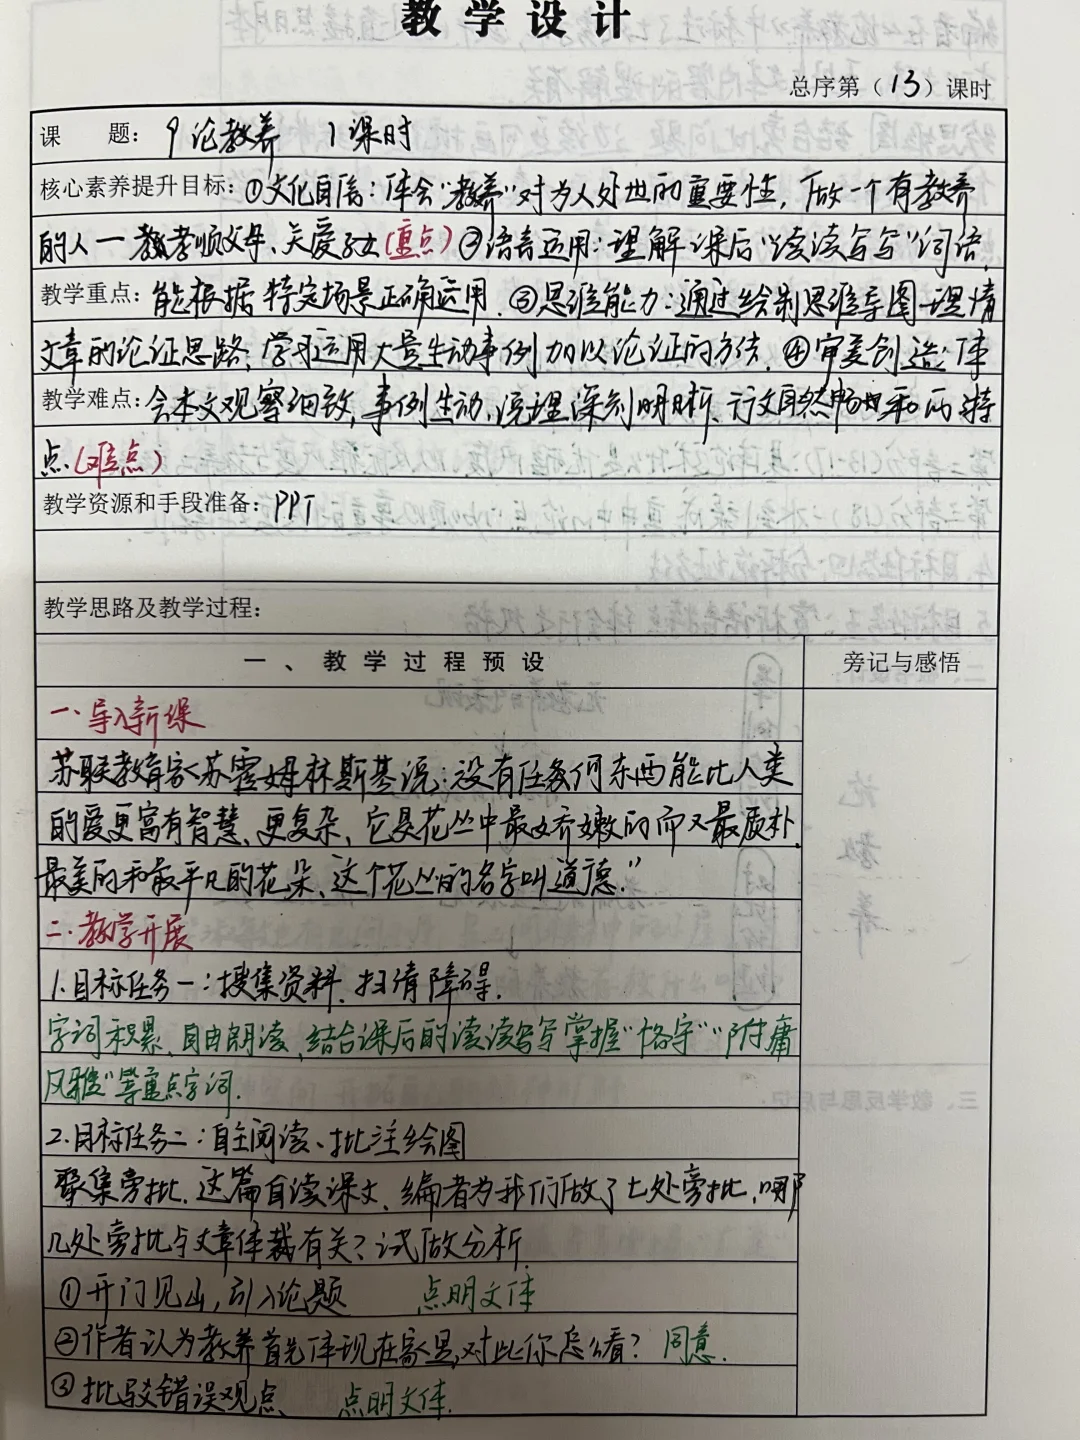 教学设计
总序第（13）课时
课 题：9 论教养 1课时
核心素养提升目标：①文化自信：体会"教养"对为人处世的重要性，做一个有教养
的人—教孝顺父母、关爱子女（重点）②语言运用：理解课后"读读写写"词语，
教学重点：能根据特定场景正确运用。③思维能力：通过绘制思维导图理清
文章的论证思路，学习运用大量生动事例加以论证的方法。④审美创造：体
教学难点：会本文观察细致，事例生动，说理深刻明晰、行文自然畅达和的特
点（难点）
教学资源和手段准备：PPT
教学思路及教学过程：
一、教学过程预设
旁记与感悟
一、导入新课
苏联教育家苏霍姆林斯基说：没有任何东西能比人类
的爱更富有智慧、更复杂，它是花丛中最娇嫩的而又最质朴
最美的和最平凡的花朵，这个花丛的名字叫道德。"
二、教学开展
1.目标任务一：搜集资料、扫清障碍。
字词积累，自由朗读，结合课后的读读写写掌握"恪守""附庸
风雅"等重点字词。
2.目标任务二：自主阅读、批注绘图
聚集旁批，这篇自读课文，编者为我们做了七处旁批，哪
几处旁批与文章体裁有关？试做分析。
①开门见山，引入论题 点明文体
②作者认为教养首先体现在家里，对此你怎么看？ 同意.
③批驳错误观点 点明文体.